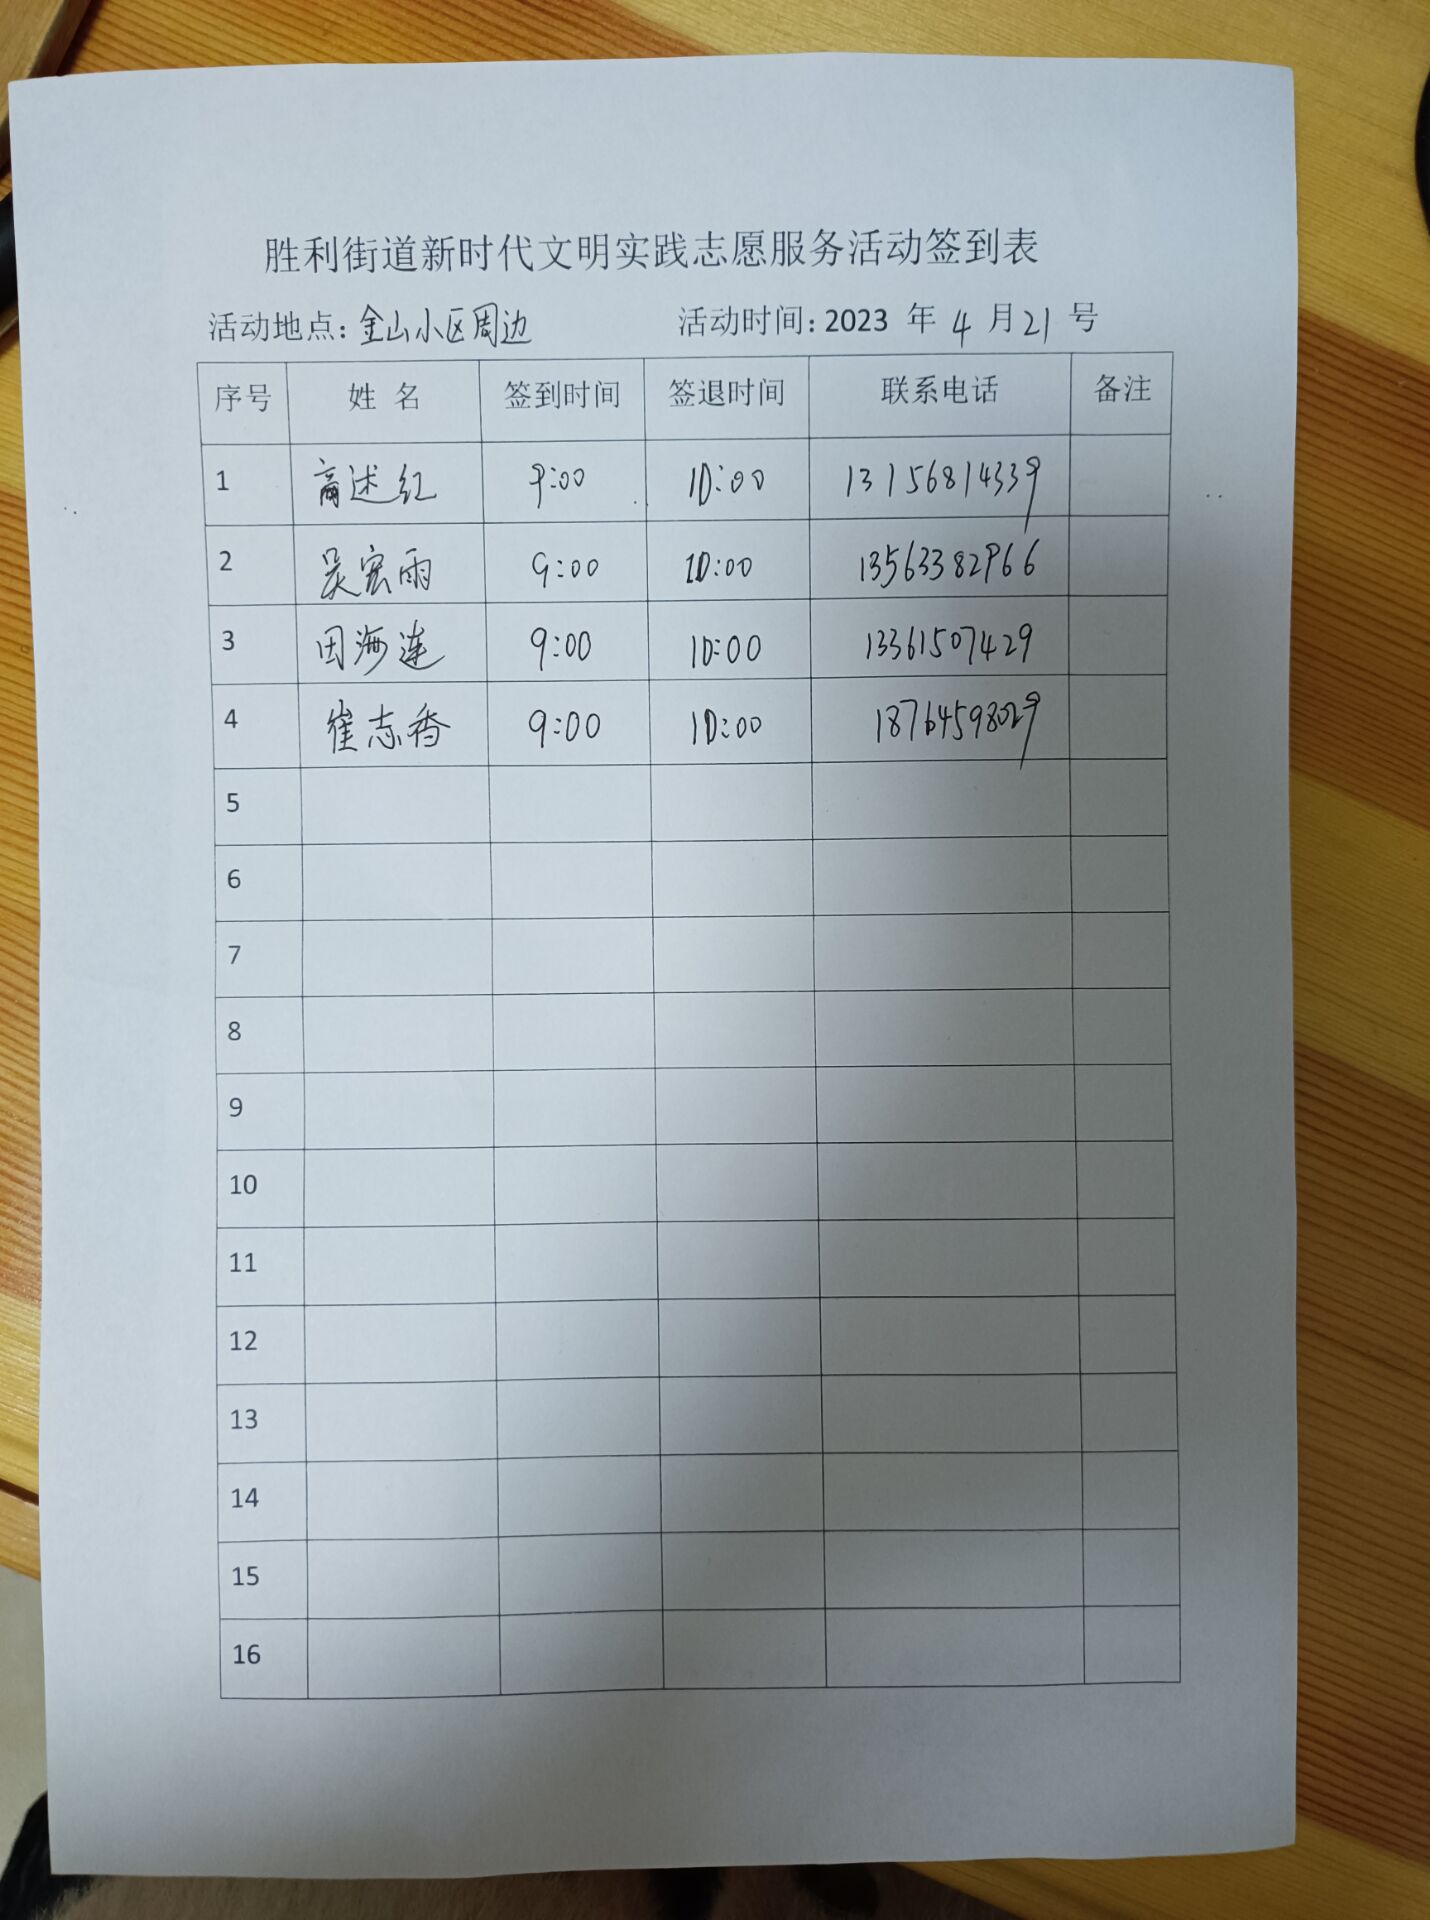 胜利街道新时代文明实践志愿服务活动签到表
活动地点: 金山小区周边 活动时间: 2023 年 4 月 21 号
序号 姓 名 签到时间 签退时间 联系电话 备注
1 高述红 9:00 10:00 13156814339
2 吴宏雨 9:00 10:00 13563382966
3 田海莲 9:00 10:00 13361507429
4 崔志香 9:00 10:00 18764598029
5
6
7
8
9
10
11
12
13
14
15
16